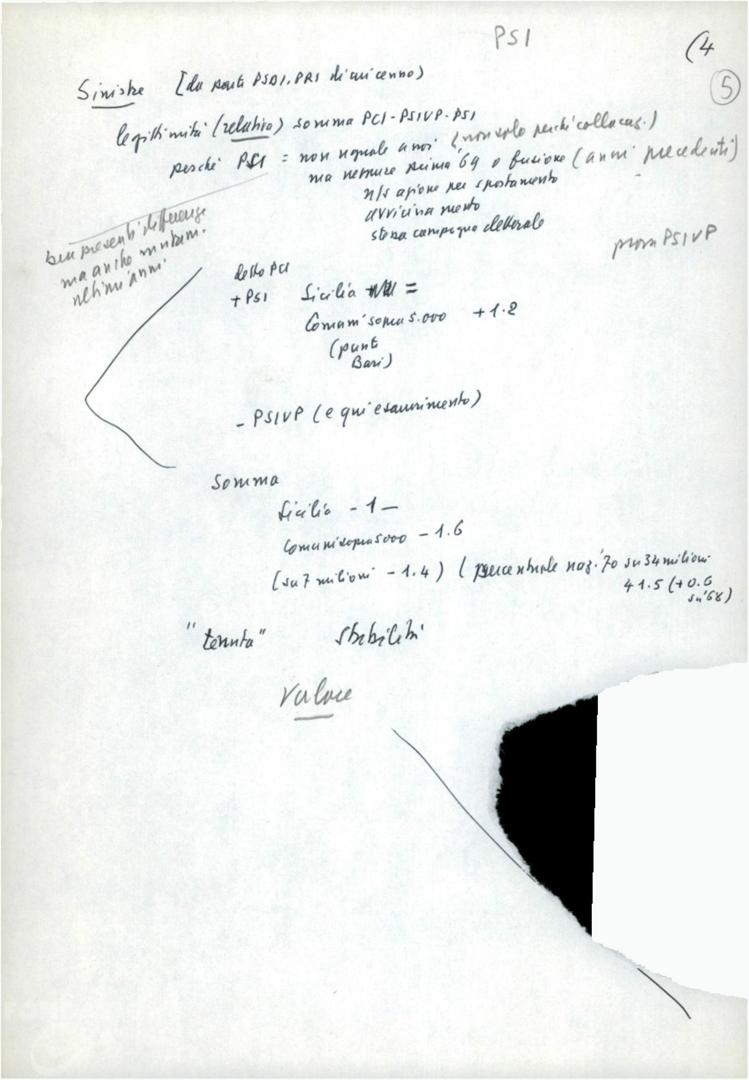 PSI
(4
5
Sinistre [da parte PSDI, PRI di un cenno)
legittimità (relativa) somma PCI-PSIUP-PSI
perché PSI = non uguale a noi (non solo perché collocaz.)
ma neppure prima '69 o fusione (anni precedenti)
n/s azione per spostamento
avvicinamento
stessa campagna elettorale
ben presenti differenze
ma anche mutam.
ultimi anni
prova PSIUP
detto PCI
+ PSI Sicilia =
Comuni sopra 5.000 + 1.2
(punti
Bari)
- PSIUP (e qui esaurimento)
somma
Sicilia - 1 -
Comuni sopra 5000 - 1.6
(su 7 milioni - 1.4) (percentuale naz. '70 su 34 milioni
41.5 (+0.6
su '68)
"tenuta" stabilità
Valore